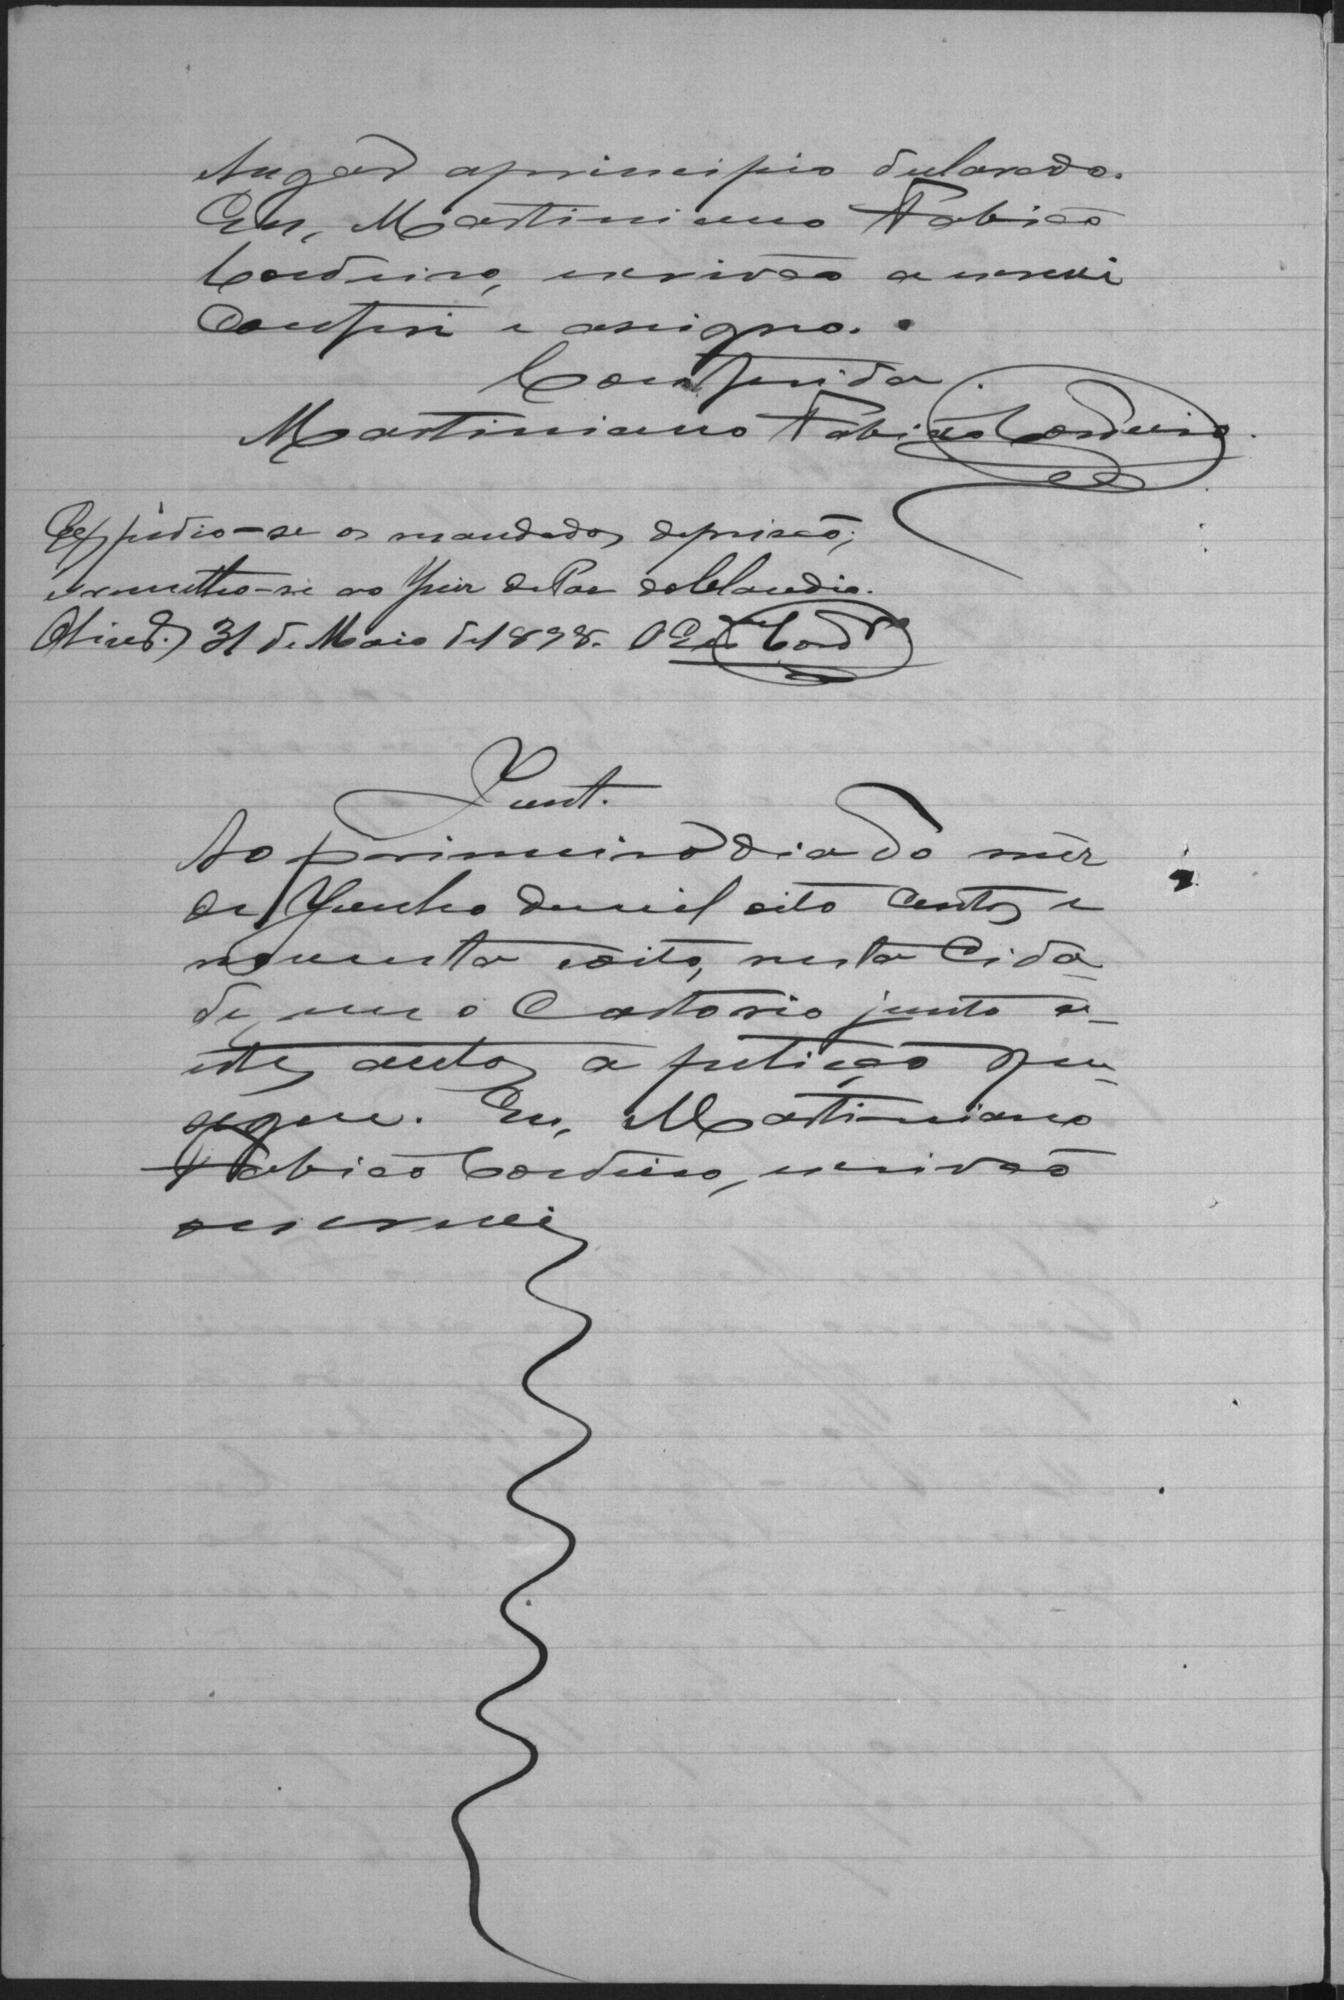 lugar a principio declarado.
Eu, Martiniano Fabião
Cordeiro, escrivão a escrevi
Conferi e assigno.
Conferida
Martiniano Fabião Cordeiro.
Expedio-se os mandados de prisão;
e remetteo-se ao Juiz de Paz do Claudio.
31 de Maio de 1898. O Es. Cord.ro
Junt.
Ao primeiro dia do mez
de Junho de mil oito centos e
noventa e oito, nesta Cida-
de, em o Cartorio junto a
estes autos a petição que
segue. Eu, Martiniano
Fabião Cordeiro, escrivão
escrevi